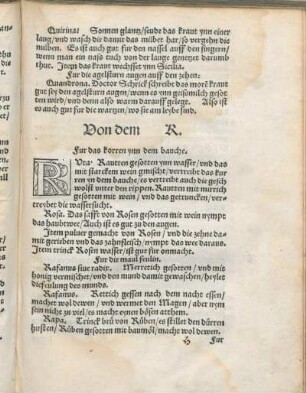 Quirina: Sonnen glantz/seubt das kraut ynn einer
laug/vnd wasch die damit das milber har/so vergehn die
milben. Es ist auch gut fur den nassel auff den fingern/
wenn man ein naß tuch von der lauge genetzet darumb
thut. Item das kraut wechsset ynn Sicilia.
Fur die agelsturn augen auff den zehen:
Quandrona. Doctor Schrick schreibt das more kraut
gut sey den agelsturn augen/wenn es ynn gaißmilch gesot
ten wird/vnd denn also warm darauff gelegt. Also ist
es auch gut fur die wartzen/wo sie am leybe sind.
Von dem R.
Fur das korren ynn dem bauche.
RVta: Rautten gesotten ynn wasser/vnd das
mit starckem wein gmischt/vertreibt das kur
ren yn dem bauche/es vertreibt auch die geschi
wolst vnter den rippen. Rautten mit mirrich
gesotten mit wein/vnd das getruncken/ver-
treybet die wassersucht.
Rosa. Das safft von Rosen gesotten mit wein nympt
das haubtwee/Auch ist es gut zu den augen.
Item puluer gemacht von Rosen/vnd die zehne da-
mit gerieben vnd das zahnfleisch/nympt das wee daraus.
Item trinck Rosen wasser/ist gut fur onmacht.
Fur die maul feulen.
Rafanus siue radix. Merretich gesotten/vnd mit
honig vermischet/vnd den mund damit gewaschen/heylet
die feulung des munds.
Rafanus. Rettich gessen nach dem nacht essen/
machet wol dewen/vnd wermet den Magen/aber nym
sein nicht zu viel/es macht eynen bösen atthem.
Rapa. Trinck brü von Rüben/es stillet den dürren
husten/Rüben gesotten mit baumöl/macht wol dewen.
h Fur